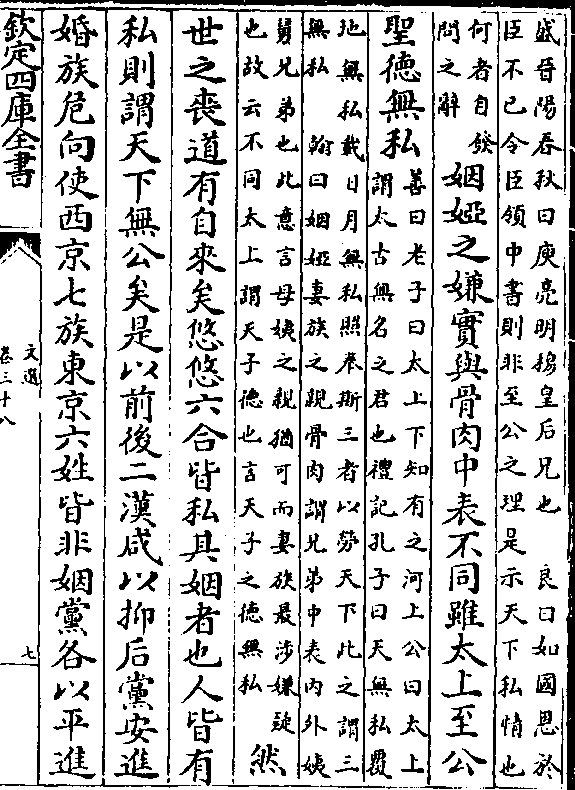 盛晉陽春秋曰庾亮明穆皇后兄也　良曰如國恩於
臣不已令臣領中書則非至公之理是示天下私情也
何者自發
問之辭
姻婭之嫌實與骨肉中表不同雖太上至公
聖德無私
善曰老子曰太上下知有之河上公曰太上
謂太古無名之君也禮記孔子曰天無私覆
地無私載日月無私照奉斯三者以勞天下此之謂三
無私　翰曰姻婭妻族之親骨肉謂兄弟中表內外姨
舅兄弟也此意言母姨之親猶可而妻族最涉嫌疑
也故云不同太上謂天子德也言天子之德無私
然
世之喪道有自來矣悠悠六合皆私其姻者也人皆有
私則謂天下無公矣是以前後二漢咸以抑后黨安進
婚族危向使西京七族東京六姓皆非姻黨各以平進
欽定四庫全書
文選
卷三十八
七